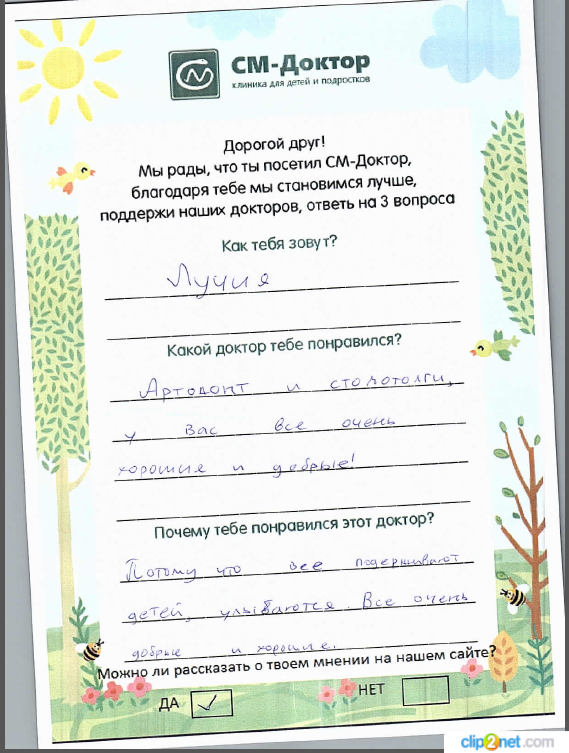 СМ-Доктор
клиника для детей и подростков
Дорогой друг!
Мы рады, что ты посетил СМ-Доктор,
благодаря тебе мы становимся лучше,
поддержи наших докторов, ответь на 3 вопроса
Как тебя зовут?
Лучия
Какой доктор тебе понравился?
Артодонт и стомотолги,
у вас все очень
хорошие и добрые!
Почему тебе понравился этот доктор?
Потому что все подерживают
детей, улыбаются. Все очень
добрые и хорошие.
Можно ли рассказать о твоем мнении на нашем сайте?
ДА ✓ НЕТ
clip2net.com